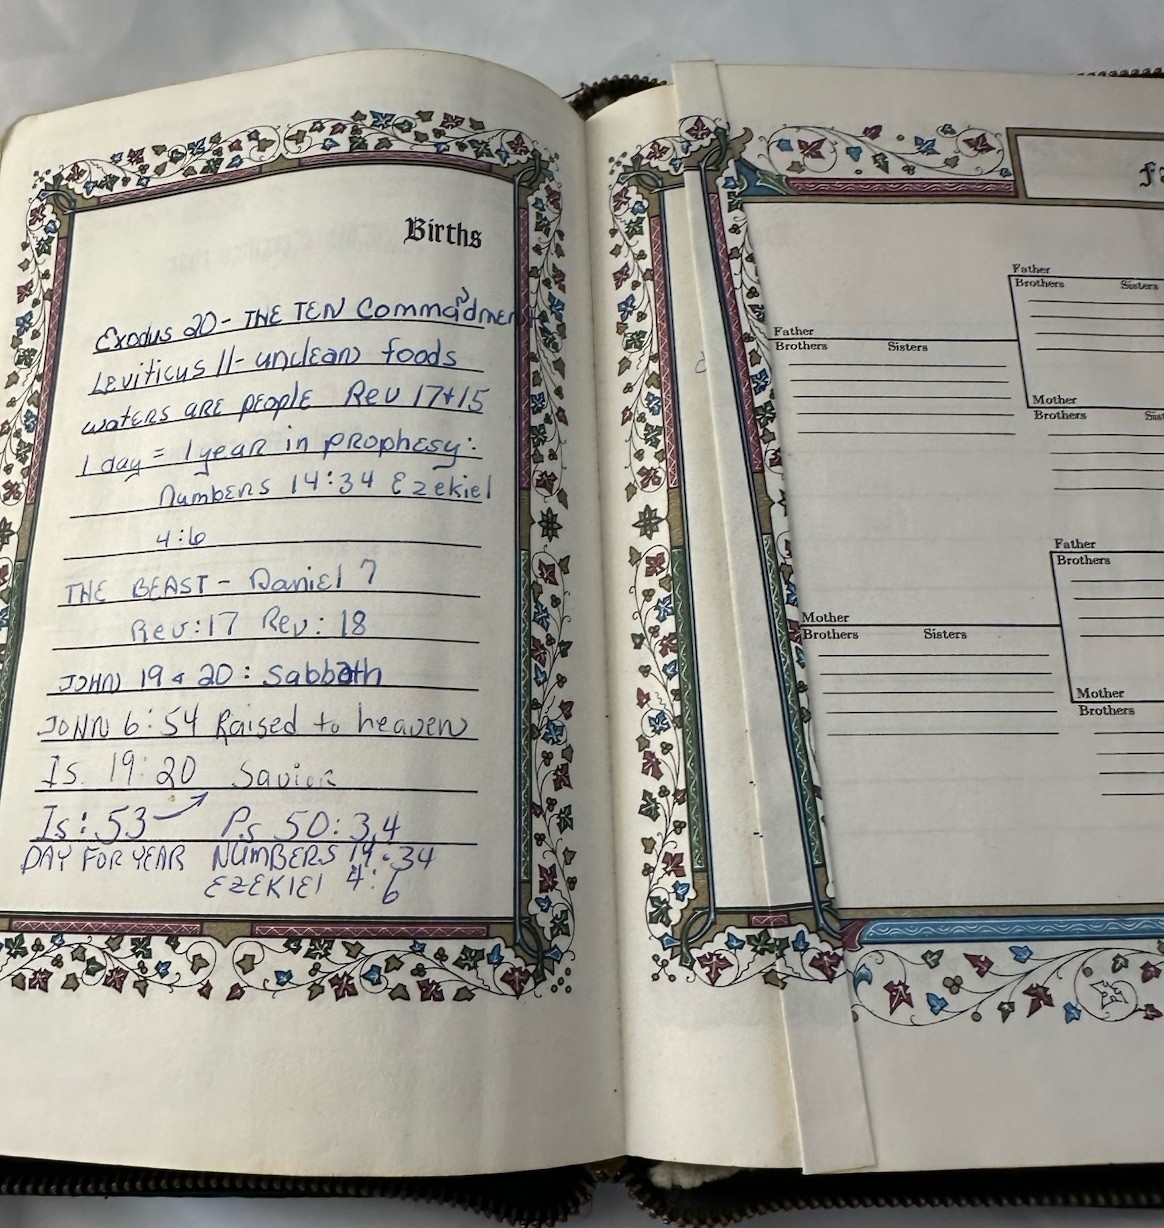 Births
Exodus 20 - THE TEN Commadment
Leviticus 11 - unclean foods
waters ARE people Rev 17+15
1 day = 1 year in prophesy:
Numbers 14:34 Ezekiel
4:6
THE BEAST - Daniel 7
Rev:17 Rev: 18
JOHN 19 & 20: Sabbath
JOHN 6:54 Raised to heaven
Is. 19:20 Savior
Is: 53 Ps 50: 3,4
DAY FOR YEAR NUMBERS 14:34
EZEKIEL 4:6
Father
Brothers Sisters
Father
Brothers Sisters
Mother
Brothers
Father
Brothers
Mother
Brothers Sisters
Mother
Brothers